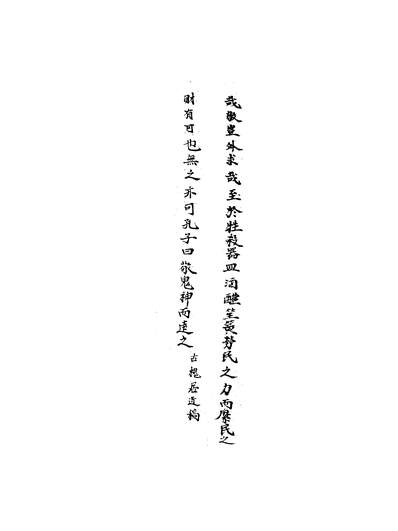 哉敬豈外求哉至於牲殺器皿酒醴笙簧勞民之力而糜民之
財有可也無之亦可孔子曰敬鬼神而遠之 古槐